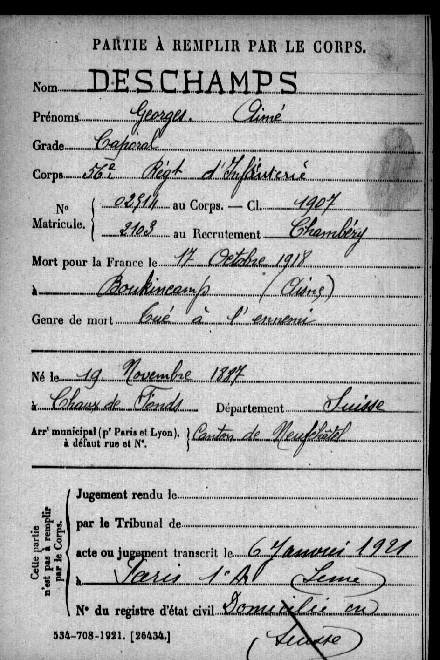 PARTIE À REMPLIR PAR LE CORPS.
Nom DESCHAMPS
Prénoms Georges. Aimé
Grade Caporal
Corps 56e Régt d'Infanterie
No Matricule. { 02914 au Corps. — Cl. 1907
2103 au Recrutement Chambéry
Mort pour la France le 17 Octobre 1918
à (Aisne)
Genre de mort Tué à l'ennemi
Né le 19 Novembre 1887
à Chaux de Fonds Département Suisse
Arrt municipal (pr Paris et Lyon), à défaut rue et No. } Canton de Neufchâtel
Cette partie n'est pas à remplir par le Corps.
Jugement rendu le
par le Tribunal de
acte ou jugement transcrit le 6 Janvier 1921
à Paris 1er Ar (Seine)
No du registre d'état civil Domicilié en
(Suisse)
534-708-1921. [26434.]